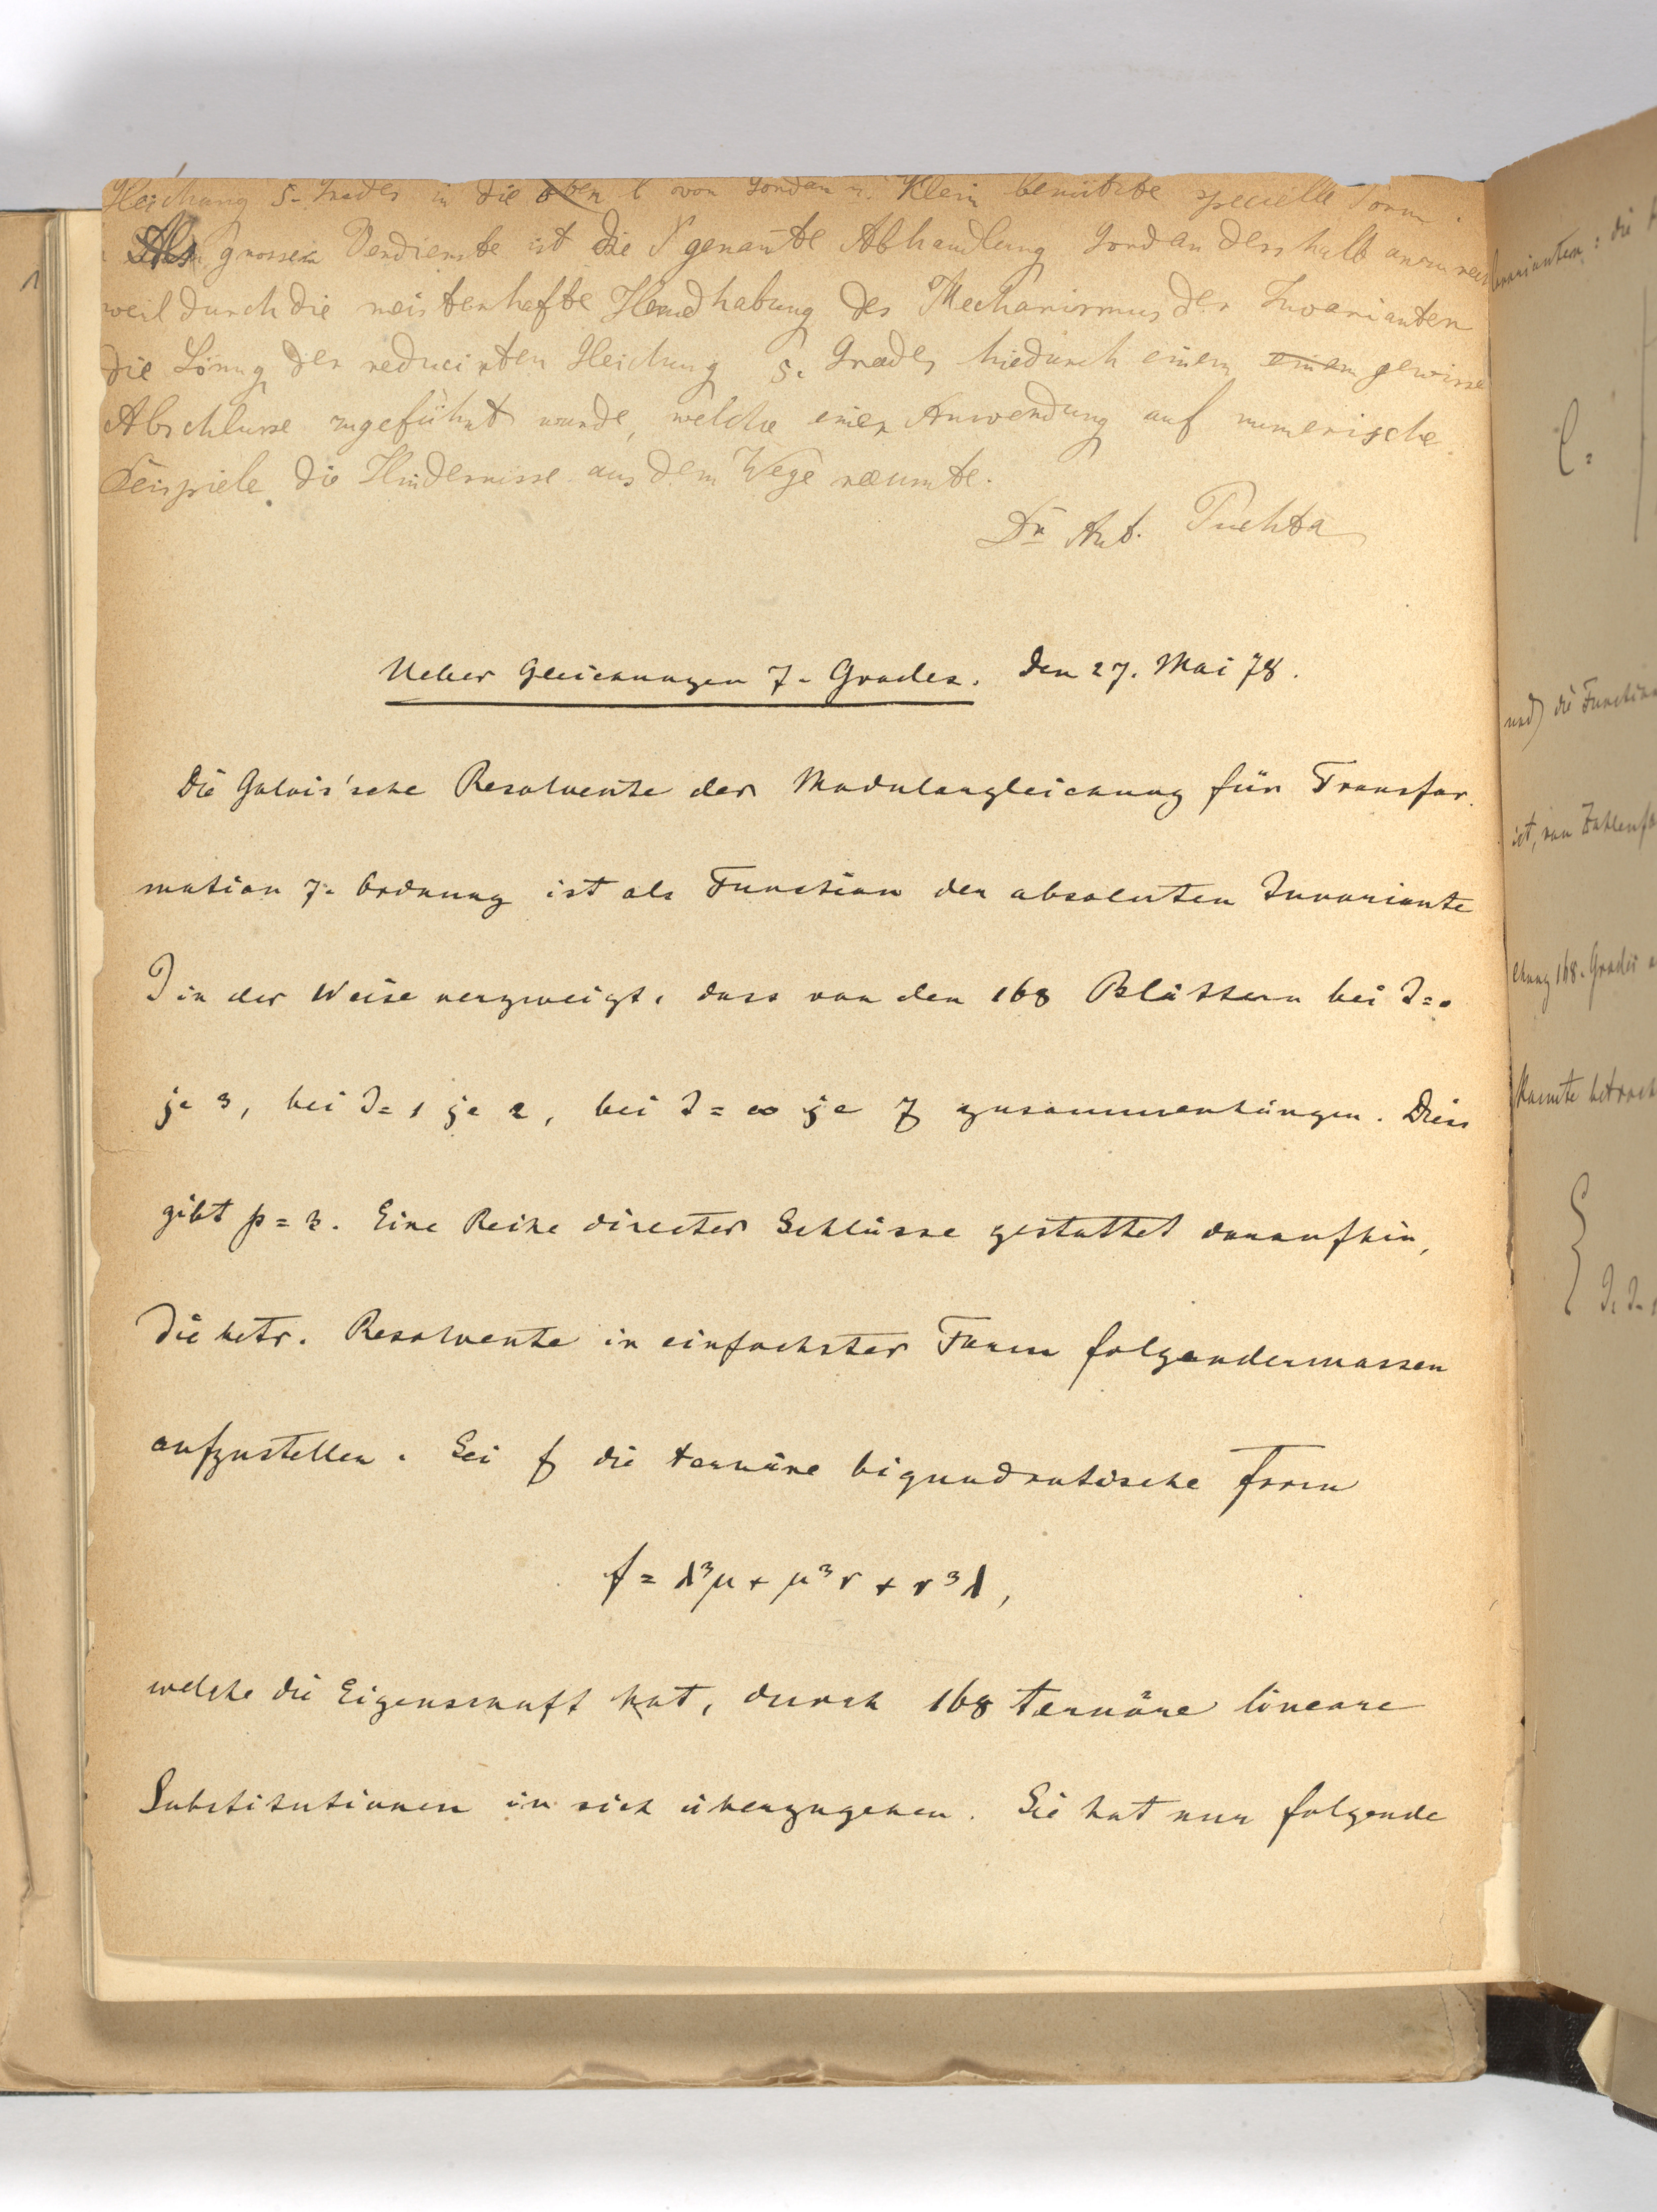 Gleichung 5. Grades in die oben v von Gordan u. Klein benützte specielle Form.
Als grosses Verdienste ist die genannte Abhandlung Gordan desshalb anzurech
weil durch die meisterhafte Handhabung des Mechanismus der Invarianten
die Lösung der reducirten Gleichung 5. Grades hiedurch einem einem gewisse
Abschlusse zugeführt wurde, welche einer Anwendung auf numerische
Beispiele die Hindernisse aus dem Wege räumte.
Dr Ant. Puchta
Ueber Gleichungen 7. Grades. Den 27. Mai 78.
Die Galois'sche Resolvente der Modulargleichung für Transfor-
mation 7. Ordnung ist als Function der absoluten Invariante
J in der Weise verzweigt, dass von den 168 Blättern bei J=0
je 3, bei J=1 je 2, bei J=∞ je 7 zusammenhängen. Dies
gibt p=3. Eine Reihe directer Schlüsse gestattet daraufhin,
die betr. Resolvente in einfachster Form folgendermassen
aufzustellen. Sei f die ternäre biquadratische Form
f = λ³μ + μ³ν + ν³λ,
welche die Eigenschaft hat, durch 168 ternäre lineare
Substitutionen in sich überzugehen. Sie hat nun folgende
1
invarianten: die
C =
und) die Function
ist, von Zahlenfa
chung 168. Grades
kannte betrach